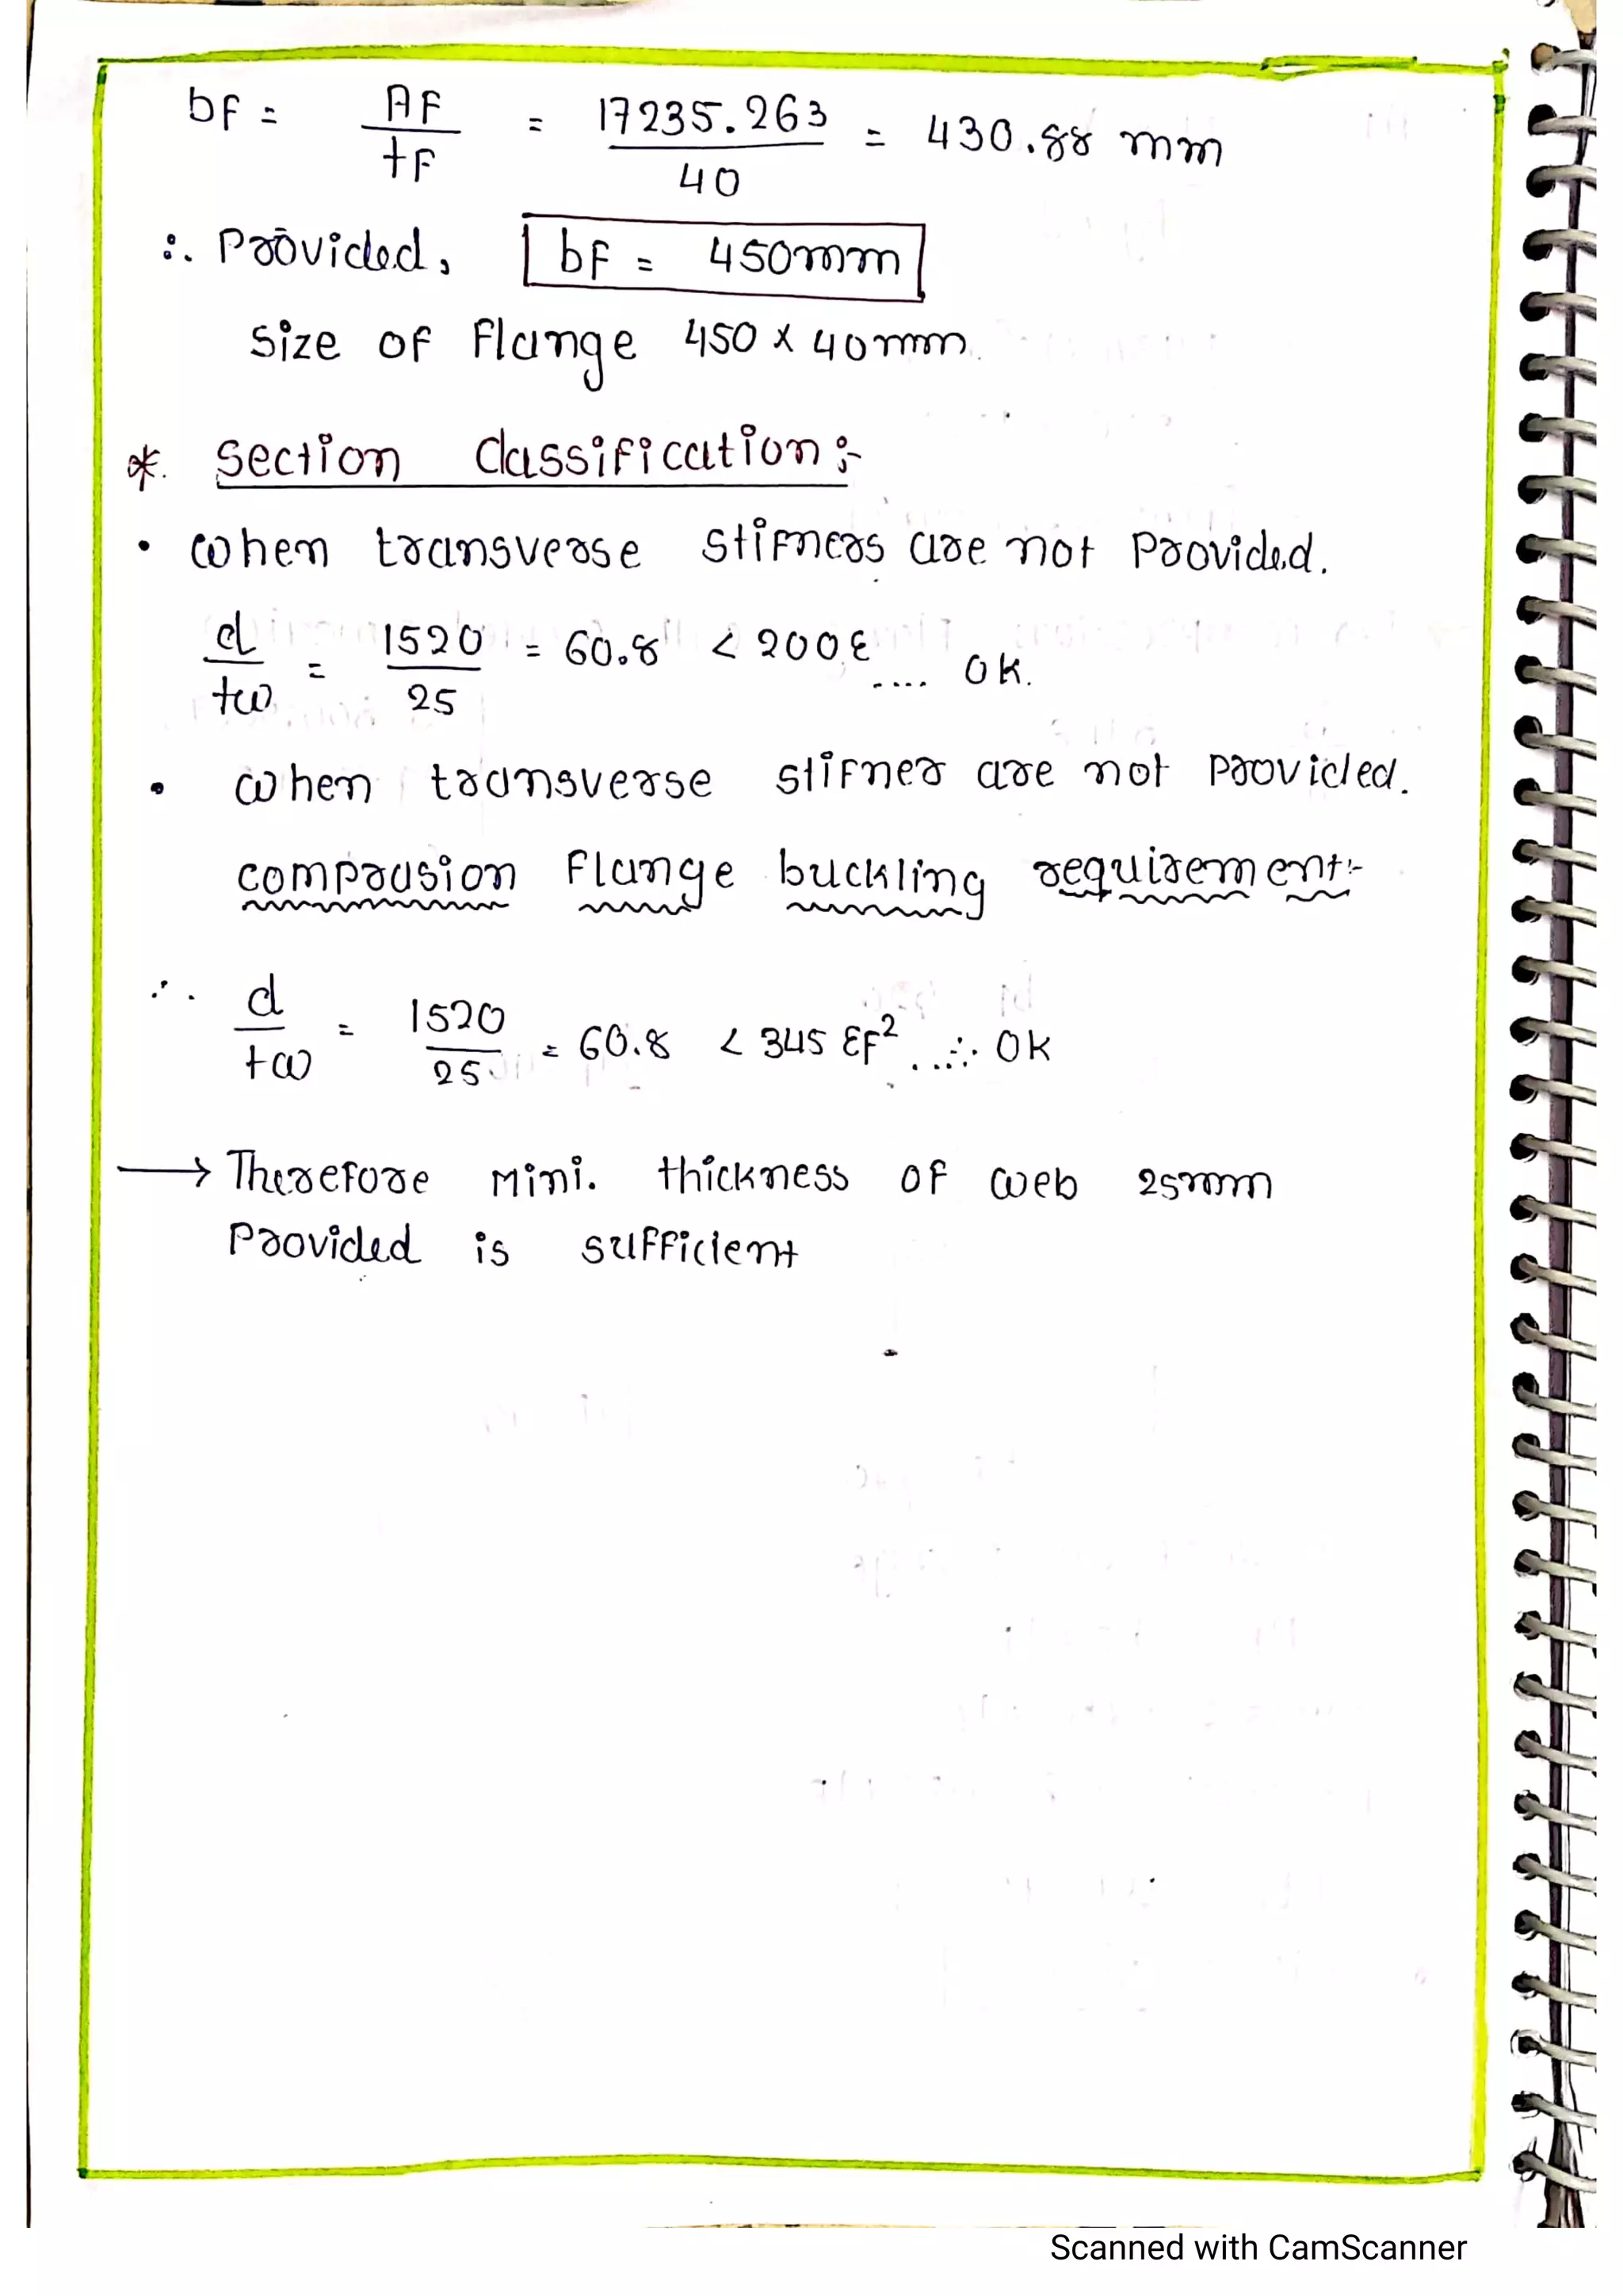 bF = AF / tF = 17235.263 / 40 = 430.88 mm
∴ Provided, bF = 450mm
Size of Flange 450 x 40mm.
*. Section Classification :-
• When transverse stifners are not Provided.
d / tw = 1520 / 25 = 60.8 < 200ε .... OK.
• When transverse stifner are not provided.
comprusion Flange buckling requirement:-
∴ d / tw = 1520 / 25 = 60.8 < 345 εF² ...∴ OK
→ Therefore Mini. thickness of web 25mm
Provided is sufficient
Scanned with CamScanner